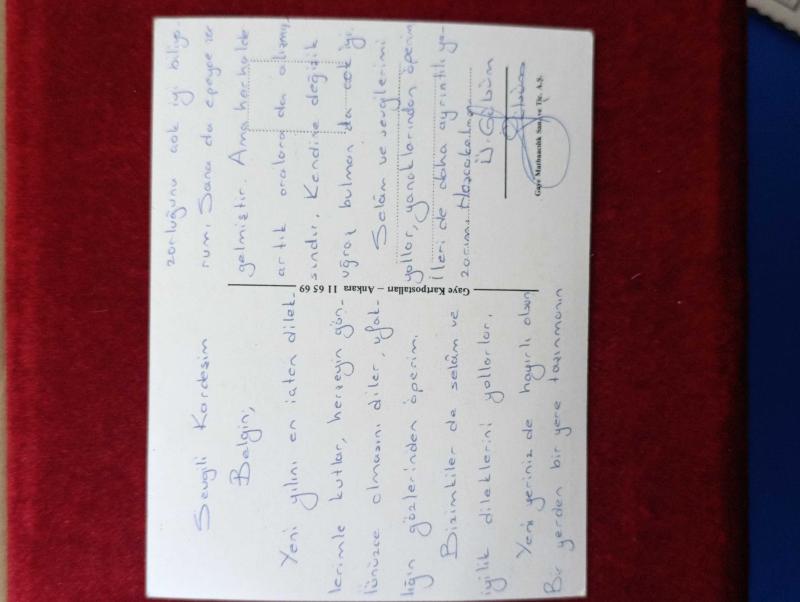 Sevgili Kardeşim
Belgin,
Yeni yılını en içten dilek-
lerimle kutlar, herşeyin gön-
lünüzce olmasını diler, ufak-
lığın gözlerinden öperim.
Bizimkiler de selâm ve
iyilik dileklerini yollarlar.
Yeni yeriniz de hayırlı olsun
Bir yerden bir yere taşınmanın
zorluğunu çok iyi biliyo-
rum. Sana da epeyce zor
gelmiştir. Ama herhalde
artık oralara da alışmış-
sındır. Kendine değişik
uğraş bulman da çok iyi.
Selâm ve sevgilerimi
yollar, yanaklarından öperim
İleri de daha ayrıntılı ya-
zarım. Hoşçakalın.
Gaye Kartpostalları – Ankara 11 65 69
Gaye Matbaacılık San. ve Tic. A.Ş.